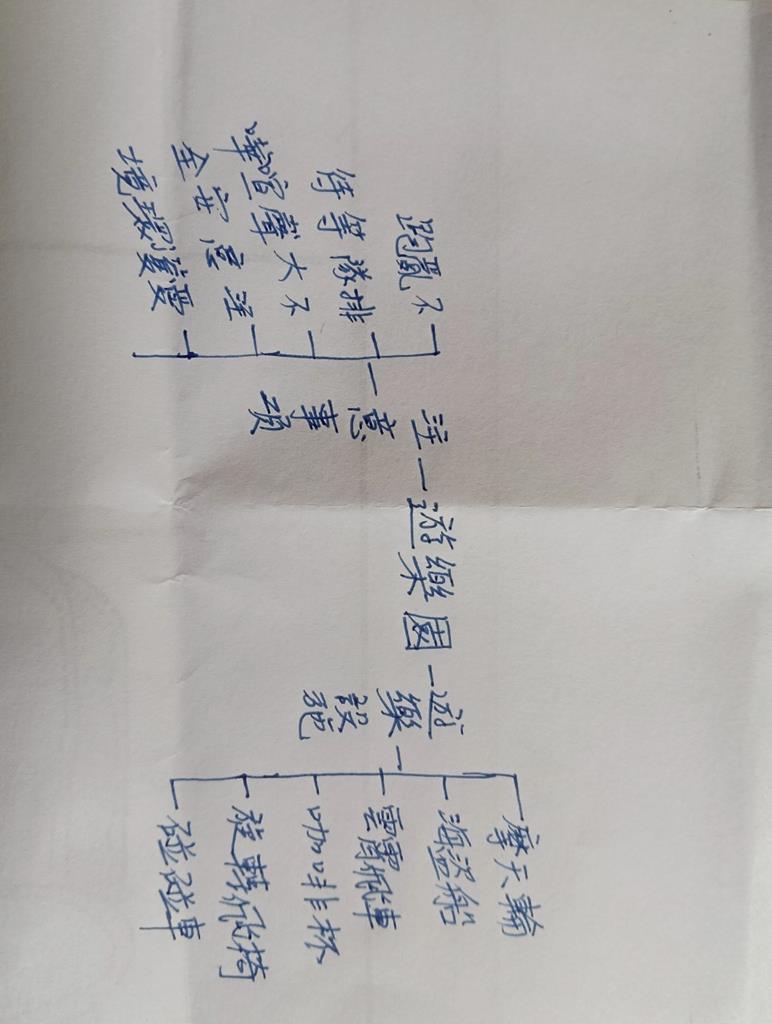 遊樂園
注意事項
不亂跑
排隊等待
不大聲喧嘩
注意安全
愛護環境
遊樂設施
摩天輪
海盜船
雲霄飛車
咖啡杯
旋轉飛椅
碰碰車